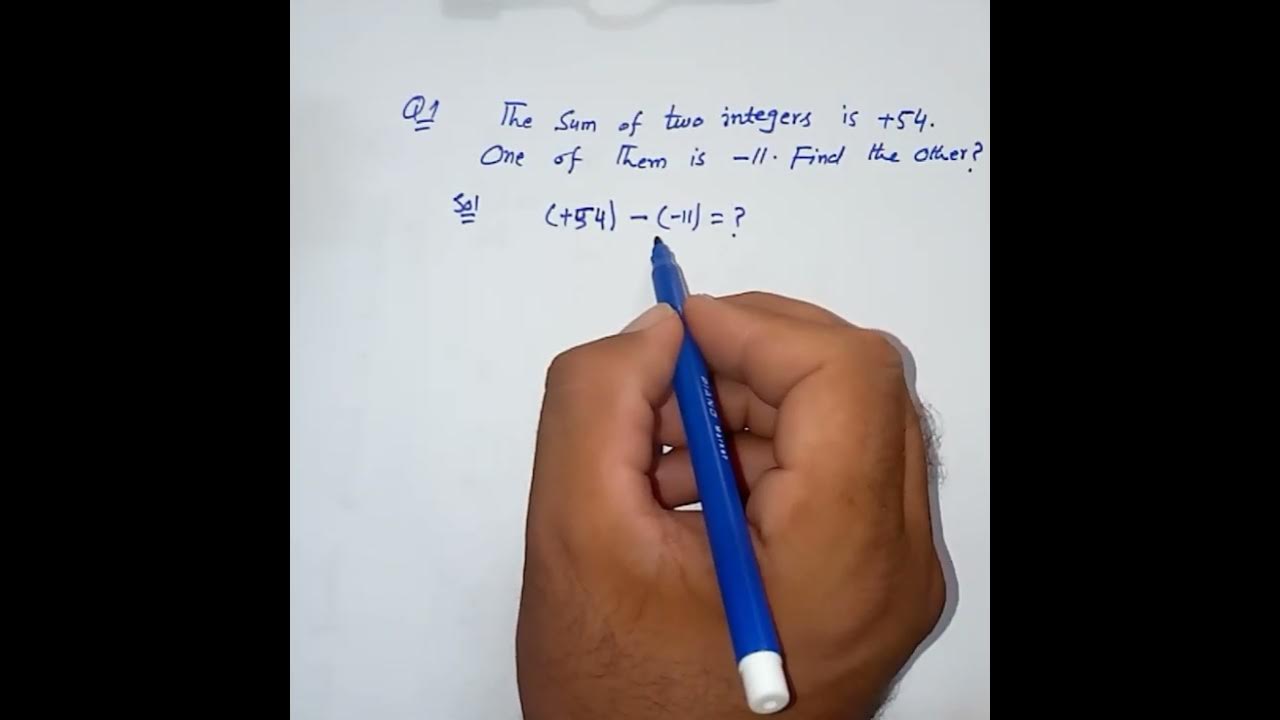 Q1 The Sum of two integers is +54.
One of Them is -11. Find the other?
Sol (+54) - (-11) = ?
PIANO